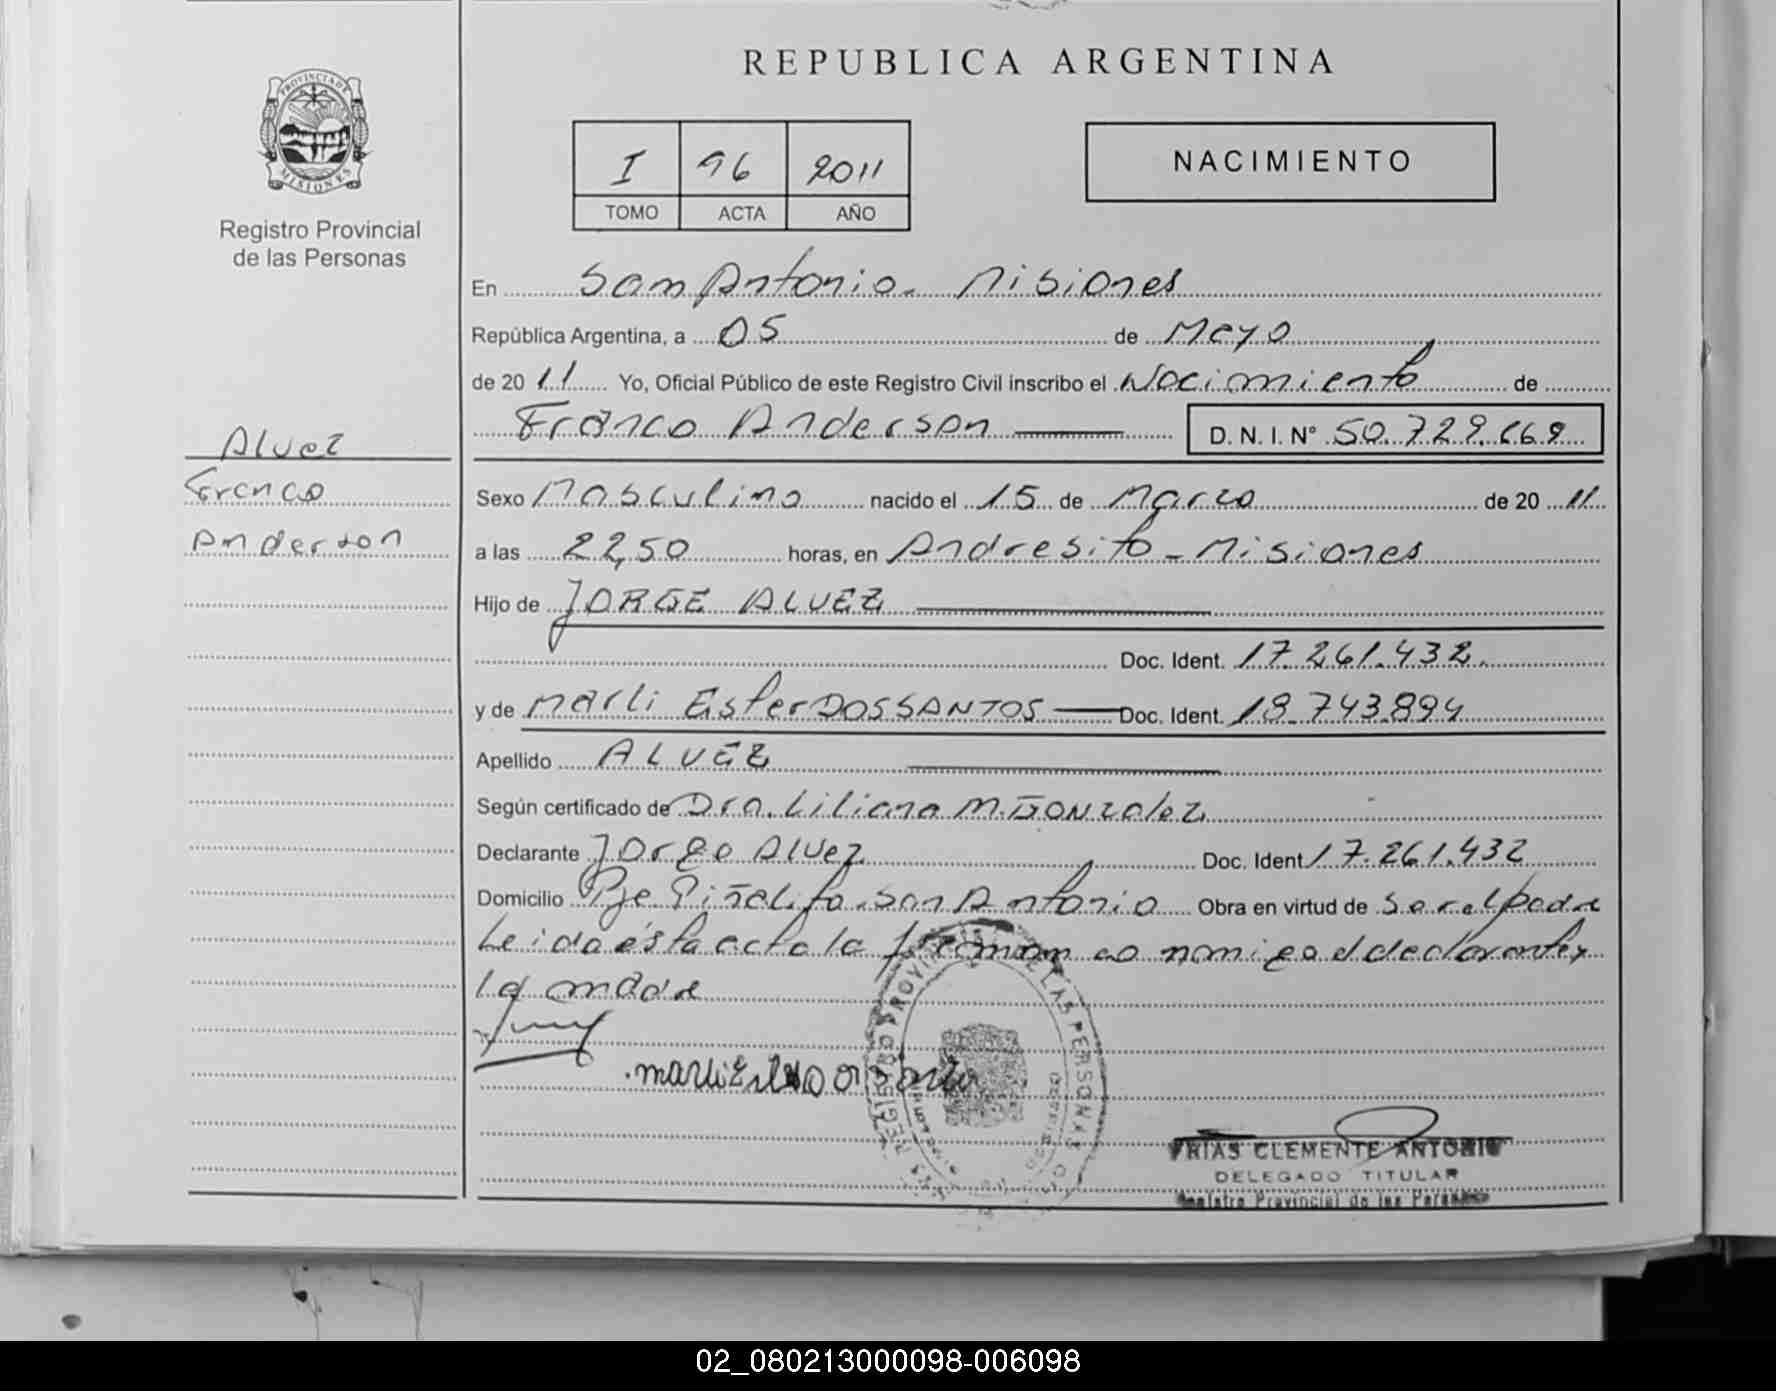 REPUBLICA ARGENTINA
PROVINCIA DE
MISIONES
Registro Provincial
de las Personas
I 96 2011
TOMO ACTA AÑO
NACIMIENTO
En San Antonio - Misiones
República Argentina, a 05 de Mayo
de 20 11 Yo, Oficial Público de este Registro Civil inscribo el Nacimiento de
Franco Anderson D. N. I. Nº 50.729.669
Alvez
Franco
Anderson
Sexo Masculino nacido el 15 de Marzo de 20 11
a las 22,50 horas, en Andresito - Misiones
Hijo de JORGE ALVEZ
Doc. Ident. 17.261.432.
y de Marli Ester DOS SANTOS Doc. Ident. 18.743.894
Apellido ALVEZ
Según certificado de Dra. Liliana M. Gonzalez
Declarante Jorge Alvez Doc. Ident 17.261.432
Domicilio Pje Piñalito - San Antonio Obra en virtud de Ser el padre
Leida ésta acta la firman conmigo el declarante y
la madre
FRIAS CLEMENTE ANTONIO
DELEGADO TITULAR
Registro Provincial de las Personas
02_080213000098-006098